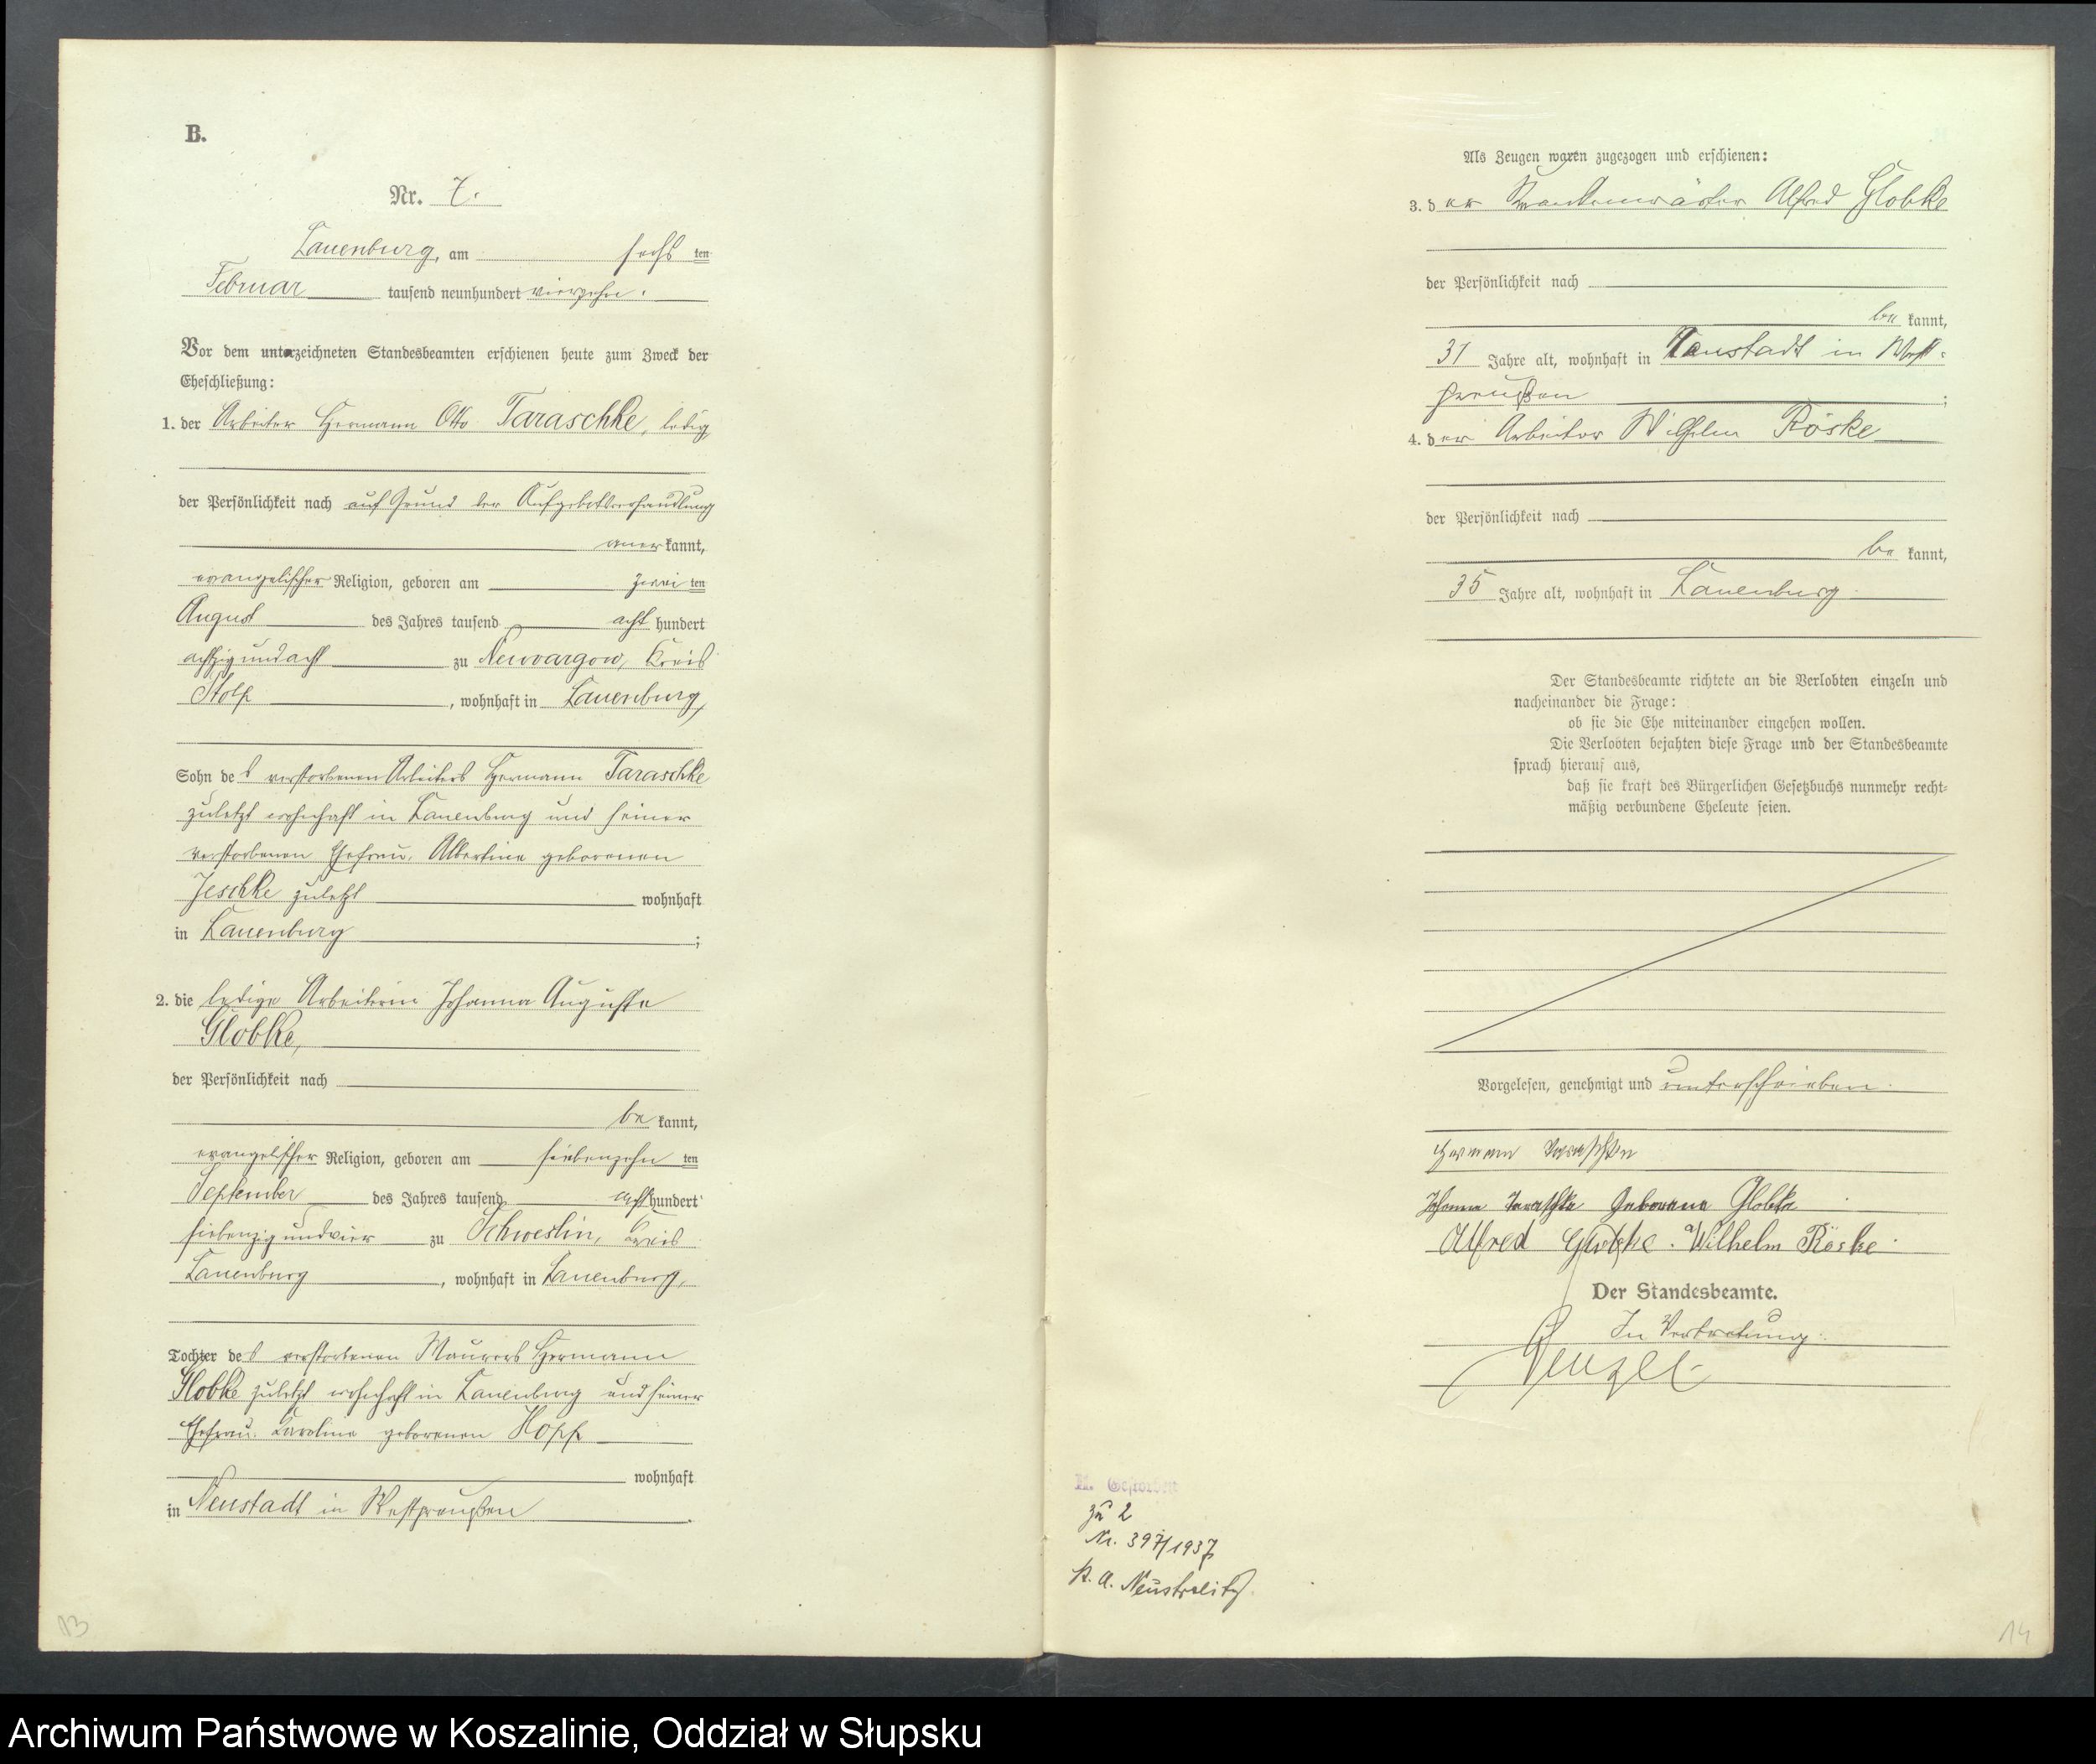 B.
Nr. 7.
Lauenburg, am sechs ten
Februar tausend neunhundert vierzehn.
Vor dem unterzeichneten Standesbeamten erschienen heute zum Zweck der
Eheschließung:
1. der Arbeiter Hermann Otto Taraschke, ledig,
der Persönlichkeit nach auf Grund der Aufgebotsverhandlung
anerkannt,
evangelischer Religion, geboren am zwei ten
August des Jahres tausend acht hundert
achtzig und acht zu Neuvargow, Kreis
Stolp, wohnhaft in Lauenburg,
Sohn des verstorbenen Arbeiters Hermann Taraschke
zuletzt wohnhaft in Lauenburg und seiner
verstorbenen Ehefrau, Albertine geborenen
Jeschke zuletzt wohnhaft
in Lauenburg;
2. die ledige Arbeiterin Johanna Auguste
Globke,
der Persönlichkeit nach
be kannt,
evangelischer Religion, geboren am siebenzehn ten
September des Jahres tausend acht hundert
siebenzig und vier zu Schweslin, Kreis
Lauenburg, wohnhaft in Lauenburg,
Tochter des verstorbenen Maurers Hermann
Globke zuletzt wohnhaft in Lauenburg und seiner
Ehefrau, Karoline geborenen Hopp
wohnhaft
in Neustadt in Westpreußen.
13
Als Zeugen waren zugezogen und erschienen:
3. der Krankenwärter Alfred Globke
der Persönlichkeit nach
be kannt,
31 Jahre alt, wohnhaft in Neustadt in West-
preußen;
4. der Arbeiter Wilhelm Röske
der Persönlichkeit nach
be kannt,
35 Jahre alt, wohnhaft in Lauenburg
Der Standesbeamte richtete an die Verlobten einzeln und
nacheinander die Frage:
ob sie die Ehe miteinander eingehen wollen.
Die Verlobten bejahten diese Frage und der Standesbeamte
sprach hierauf aus,
daß sie kraft des Bürgerlichen Gesetzbuchs nunmehr recht-
mäßig verbundene Eheleute seien.
Vorgelesen, genehmigt und unterschrieben.
Hermann Taraschke
Johanna Taraschke Geborene Globke
Alfred Globke. Wilhelm Röske
Der Standesbeamte.
In Vertretung:
Wenzel
H. Gestorben
zu 2
Nr. 397/1937
St. A. Neustrelitz.
14
Archiwum Państwowe w Koszalinie, Oddział w Słupsku